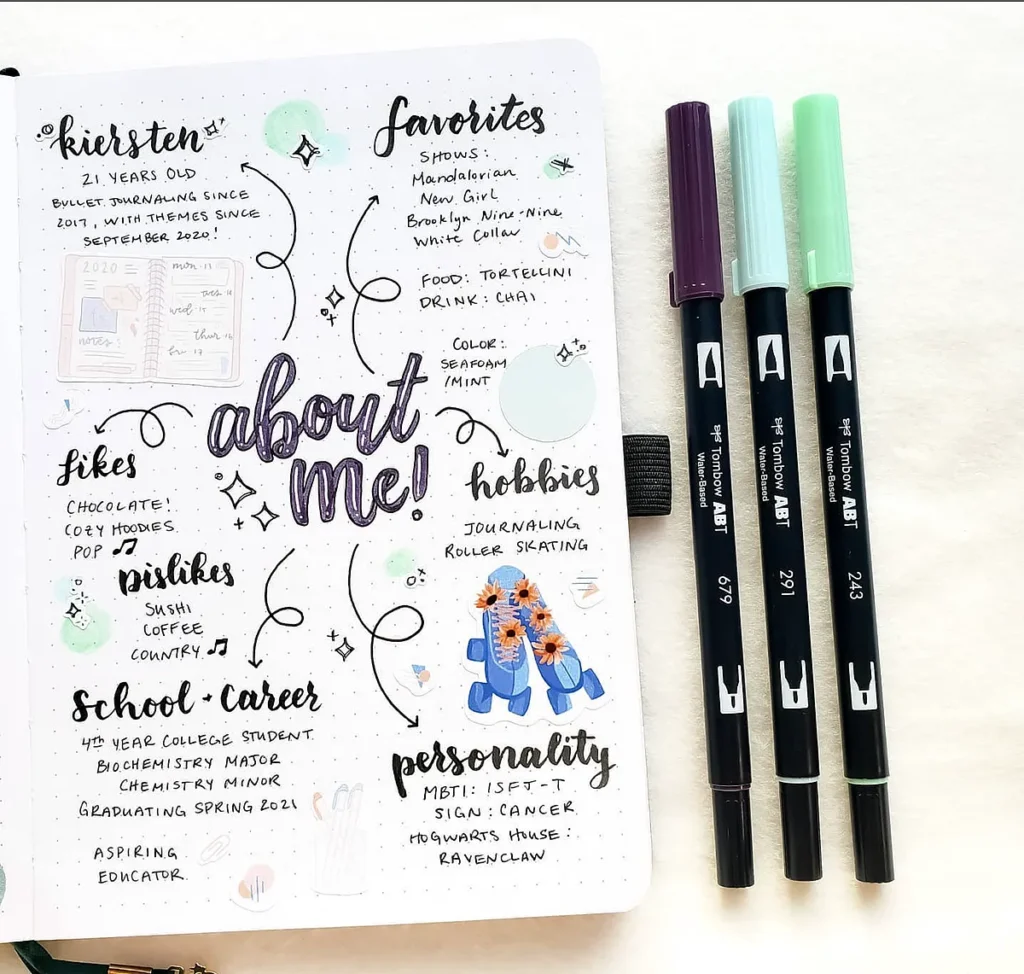 kiersten
21 YEARS OLD
BULLET JOURNALING SINCE
2017, WITH THEMES SINCE
SEPTEMBER 2020!
2020
notes:
mon·13
wed·15
thur·16
fri·17
favorites
SHOWS:
Mandalorian
New Girl
Brooklyn Nine-Nine
White Collar
FOOD: TORTELLINI
DRINK: CHAI
COLOR:
SEAFOAM
/MINT
about
me!
likes
CHOCOLATE!
COZY HOODIES
POP
Dislikes
SUSHI
COFFEE
COUNTRY
hobbies
JOURNALING
ROLLER SKATING
School + Career
4TH YEAR COLLEGE STUDENT
BIOCHEMISTRY MAJOR
CHEMISTRY MINOR
GRADUATING SPRING 2021
ASPIRING
EDUCATOR
personality
MBTI: ISFJ-T
SIGN: CANCER
HOGWARTS HOUSE:
RAVENCLAW
Tombow ABT
Water-Based
679
Tombow ABT
Water-Based
291
Tombow ABT
Water-Based
243